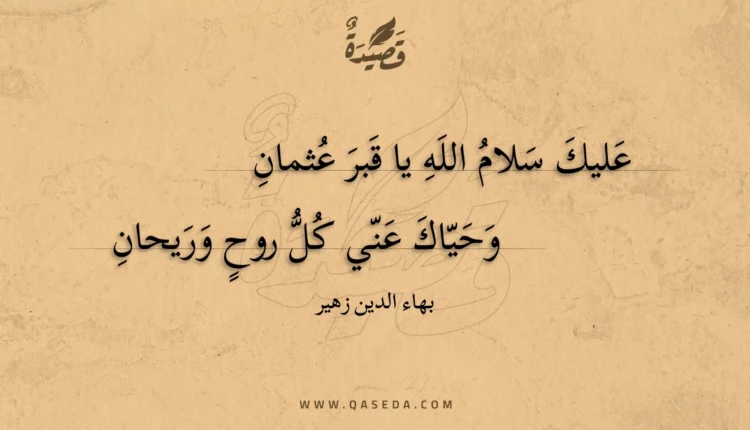 قَصِيدَةٌ
عَليكَ سَلامُ اللَهِ يا قَبرَ عُثمانِ
وَحَيّاكَ عَنّي كُلُّ روحٍ وَرَيحانِ
بهاء الدين زهير
WWW.QASEDA.COM